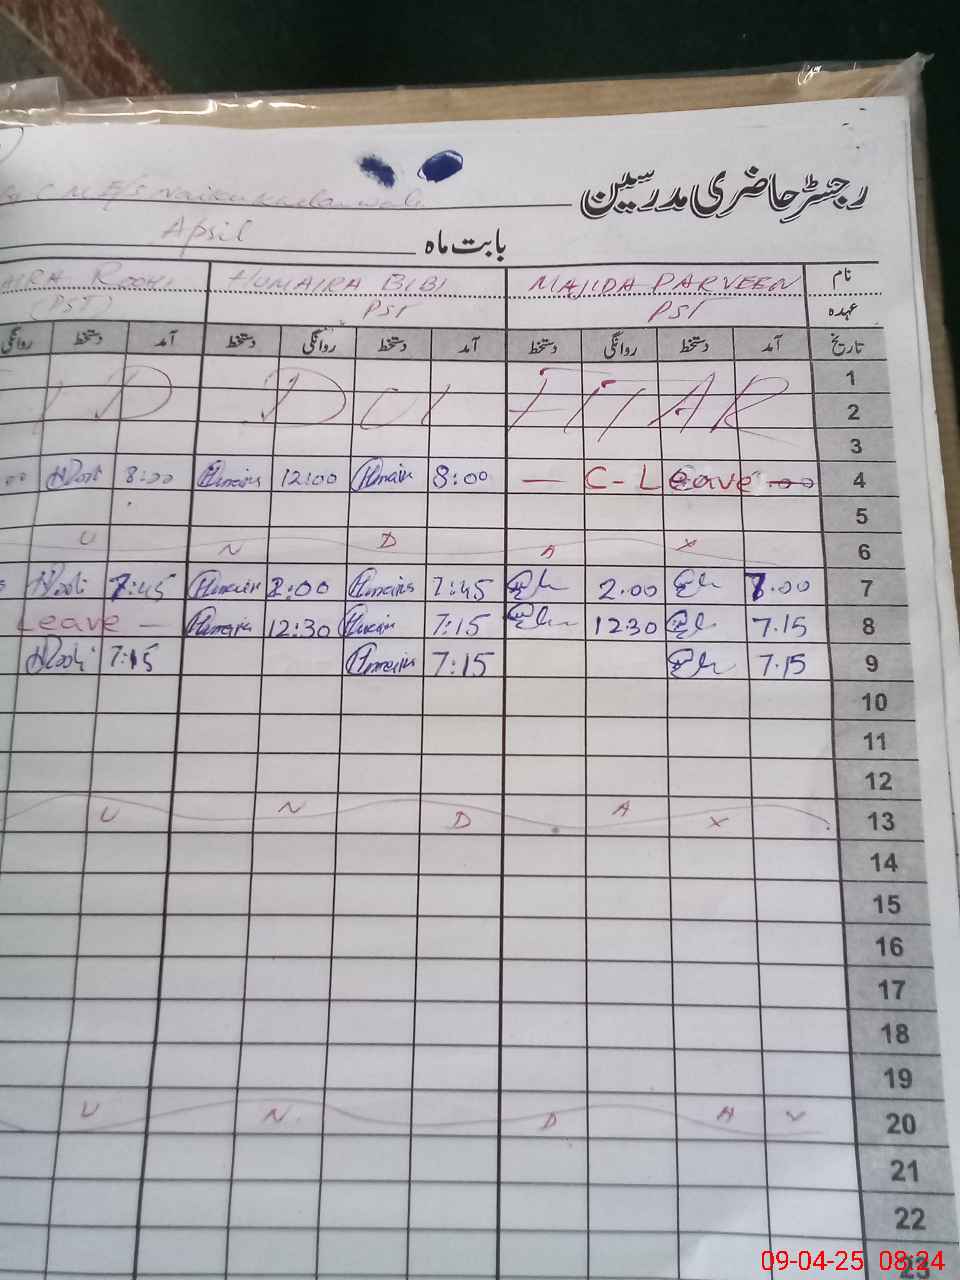 رجسٹر حاضری مدرسین
بابت ماہ April
نام MAJIDA PARVEEN HUMAIRA BIBI AIRA ROOHI
عہدہ PST PST (PST)
تاریخ آمد دستخط روانگی دستخط آمد دستخط روانگی دستخط آمد دستخط روانگی
1
2
3
4 C-Leave 8:00 Humaira 12:00 Humaira 8:00 Roohi
5
6 U N D A Y
7 7.00 2.00 7:45 Humaira 2:00 Humaira 7:45 Roohi
8 7.15 12 30 7:15 Humaira 12:30 Humaira Leave
9 7.15 7:15 Humaira 7:15 Roohi
10
11
12
13 U N D A Y
14
15
16
17
18
19
20 U N D A Y
21
22
23
09-04-25 08:24